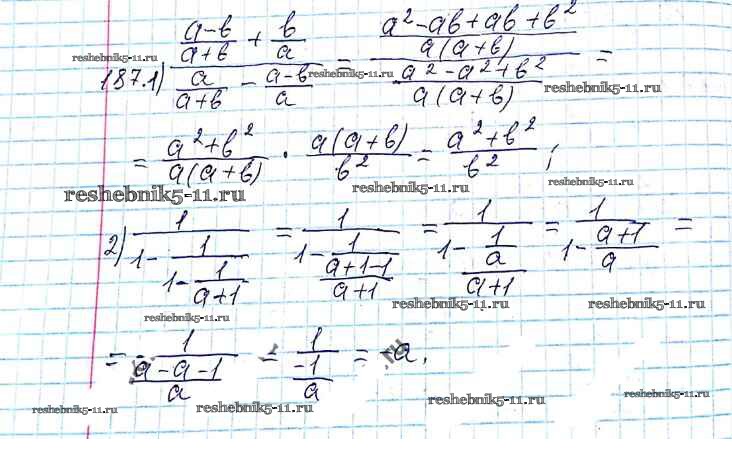 187.1) ((a-b)/(a+b) + b/a) / (a/(a+b) - (a-b)/a) = ((a² - ab + ab + b²)/(a(a+b))) / ((a² - a² + b²)/(a(a+b))) =
reshebnik5-11.ru
reshebnik5-11.ru
reshebnik5-11.ru
= (a² + b²)/(a(a+b)) · (a(a+b))/b² = (a² + b²)/b²;
reshebnik5-11.ru
reshebnik5-11.ru
reshebnik5-11.ru
2) 1/(1 - 1/(1 - 1/(a+1))) = 1/(1 - 1/((a+1-1)/(a+1))) = 1/(1 - 1/(a/(a+1))) = 1/(1 - (a+1)/a) =
reshebnik5-11.ru
reshebnik5-11.ru
reshebnik5-11.ru
= 1/((a-a-1)/a) = 1/(-1/a) = -a.
reshebnik5-11.ru
reshebnik5-11.ru
reshebnik5-11.ru
reshebnik5-11.ru